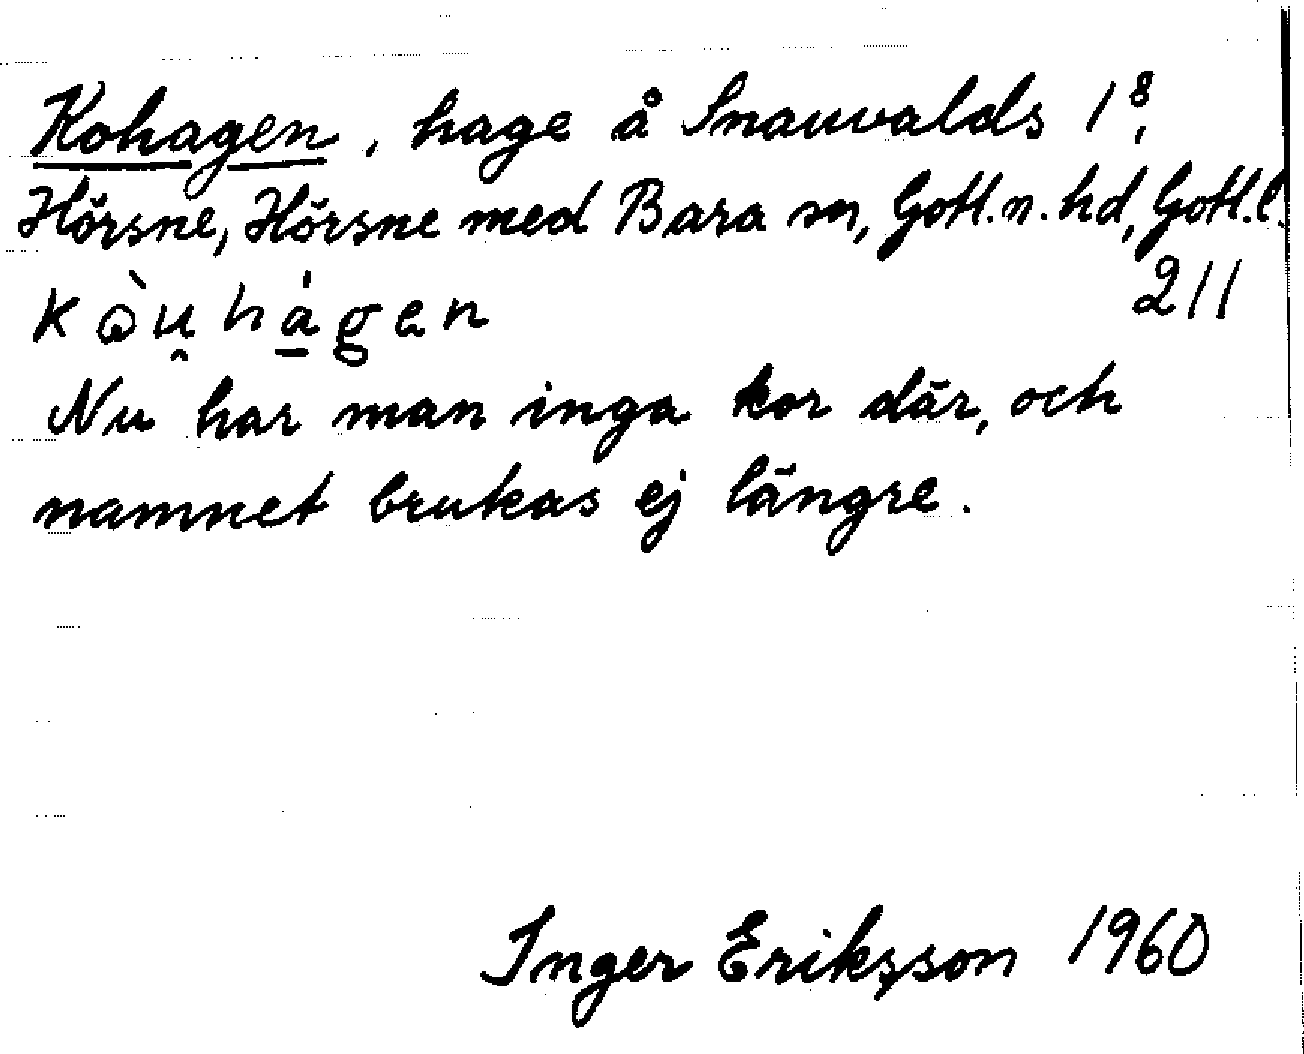 Kohagen, hage å Snauvalds 1⁸,
Hörsne, Hörsne med Bara sn, Gotl. n. hd, Gotl. l.
211
kòu̯há̱gen
Nu har man inga kor där, och
namnet brukas ej längre.
Inger Eriksson 1960